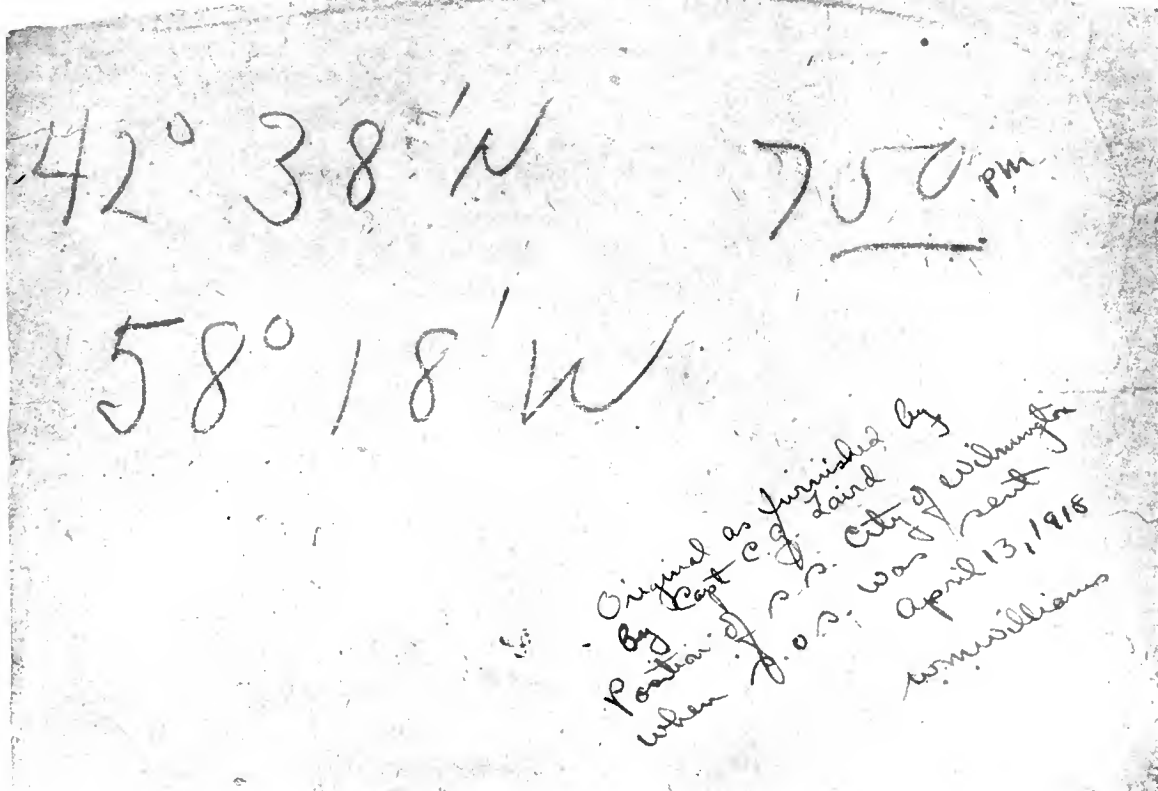 42° 38' N 7 50 pm
58° 18' W
Original as furnished by
By Capt C.J. Laird
Position of s.s. City of Wilmington
when s.o.s. was sent
April 13, 1918
wmwilliams